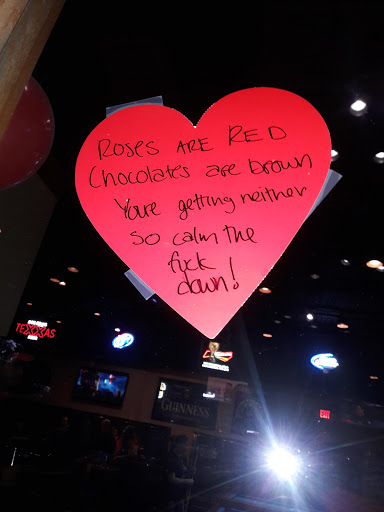 ROSES ARE RED
Chocolates are brown
Youre getting neither
so calm the
fuck
down!
TEXXAS
GUINNESS
EXIT